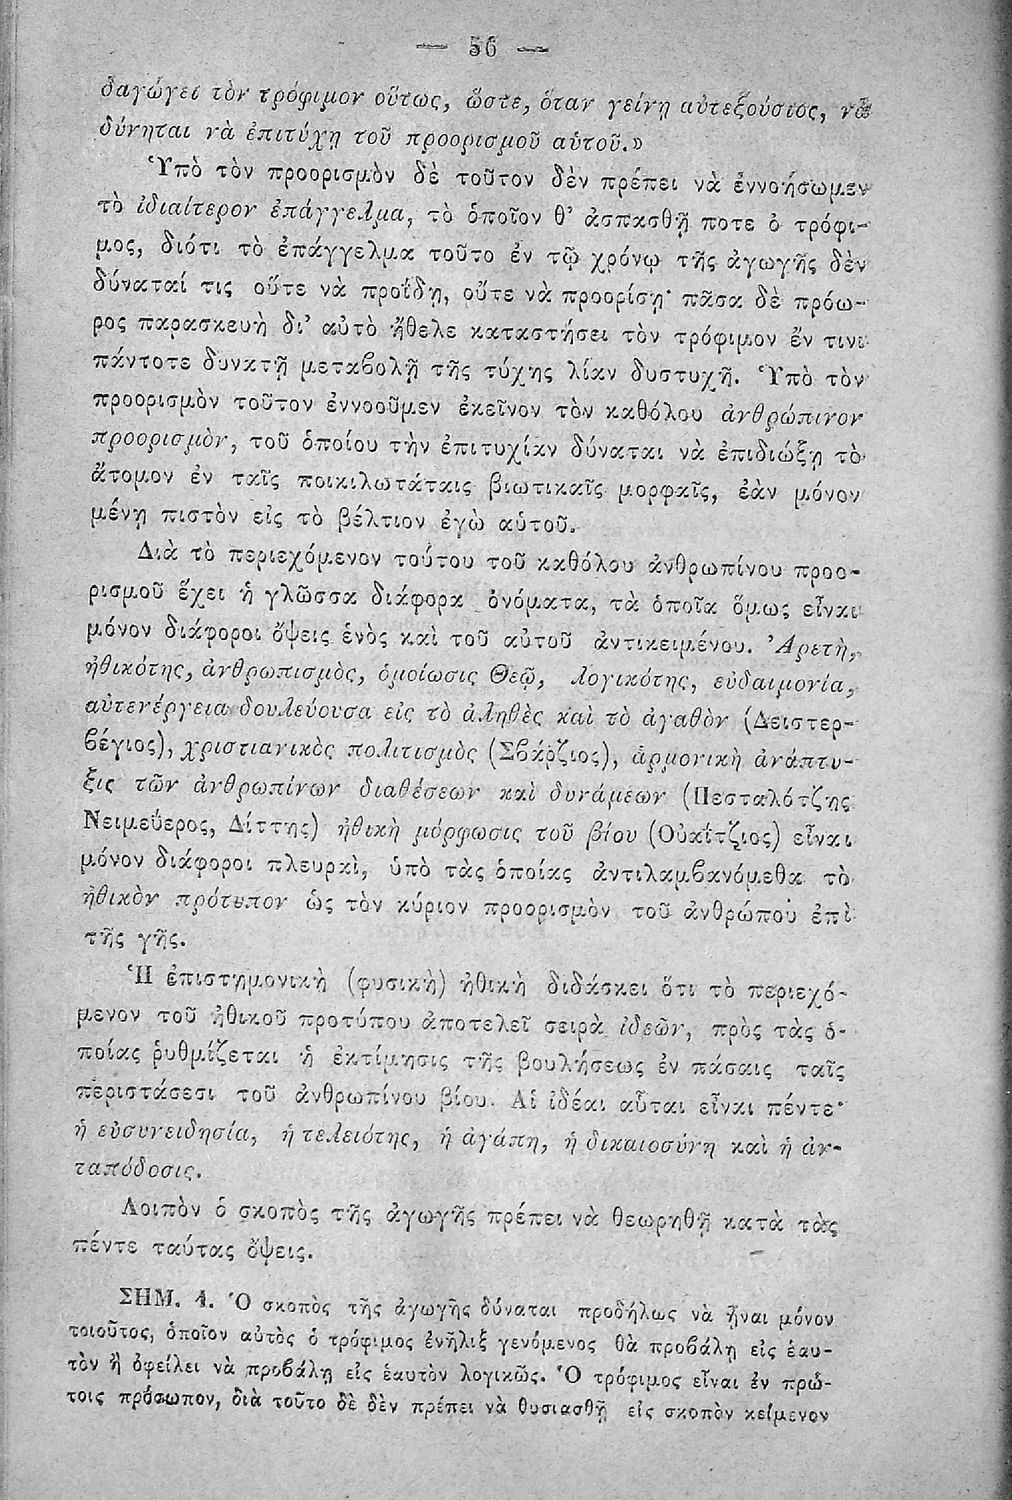 — 56 —
δαγώγει τὸν τρόφιμον οὕτως, ὥστε, ὅταν γείνῃ αὐτεξούσιος, νὰ
δύνηται νὰ ἐπιτύχῃ τοῦ προορισμοῦ αὑτοῦ.»
Ὑπὸ τὸν προορισμὸν δὲ τοῦτον δὲν πρέπει νὰ ἐννοήσωμεν
τὸ ἰδιαίτερον ἐπάγγελμα, τὸ ὁποῖον θ’ ἀσπασθῇ ποτε ὁ τρόφι-
μος, διότι τὸ ἐπάγγελμα τοῦτο ἐν τῷ χρόνῳ τῆς ἀγωγῆς δὲν
δύναταί τις οὔτε νὰ προΐδῃ, οὔτε νὰ προορίσῃ· πᾶσα δὲ πρόω-
ρος παρασκευὴ δι’ αὐτὸ ἤθελε καταστήσει τὸν τρόφιμον ἔν τινι
πάντοτε δυνατῇ μεταβολῇ τῆς τύχης λίαν δυστυχῆ. Ὑπὸ τὸν
προορισμὸν τοῦτον ἐννοοῦμεν ἐκεῖνον τὸν καθόλου ἀνθρώπινον
προορισμὸν, τοῦ ὁποίου τὴν ἐπιτυχίαν δύναται νὰ ἐπιδιώξῃ τὸ
ἄτομον ἐν ταῖς ποικιλωτάταις βιωτικαῖς μορφαῖς, ἐὰν μόνον
μένῃ πιστὸν εἰς τὸ βέλτιον ἐγὼ αὑτοῦ.
Διὰ τὸ περιεχόμενον τούτου τοῦ καθόλου ἀνθρωπίνου προο-
ρισμοῦ ἔχει ἡ γλῶσσα διάφορα ὀνόματα, τὰ ὁποῖα ὅμως εἶναι
μόνον διάφοροι ὄψεις ἑνὸς καὶ τοῦ αὐτοῦ ἀντικειμένου. Ἀρετὴ,
ἠθικότης, ἀνθρωπισμὸς, ὁμοίωσις Θεῷ, λογικότης, εὐδαιμονία,
αὐτενέργεια δουλεύουσα εἰς τὸ ἀληθὲς καὶ τὸ ἀγαθὸν (Δειστερ-
βέγιος), χριστιανικὸς πολιτισμὸς (Σβάρζιος), ἁρμονικὴ ἀνάπτυ-
ξις τῶν ἀνθρωπίνων διαθέσεων καὶ δυνάμεων (Πεσταλότζης
Νειμεΰερος, Δίττης) ἠθικὴ μόρφωσις τοῦ βίου (Οὐαΐτζιος) εἶναι
μόνον διάφοροι πλευραὶ, ὑπὸ τὰς ὁποίας ἀντιλαμβανόμεθα τὸ
ἠθικὸν πρότυπον ὡς τὸν κύριον προορισμὸν τοῦ ἀνθρώπου ἐπὶ
τῆς γῆς.
Ἡ ἐπιστημονικὴ (φυσικὴ) ἠθικὴ διδάσκει ὅτι τὸ περιεχό-
μενον τοῦ ἠθικοῦ προτύπου ἀποτελεῖ σειρὰ ἰδεῶν, πρὸς τὰς ὁ-
ποίας ῥυθμίζεται ἡ ἐκτίμησις τῆς βουλήσεως ἐν πάσαις ταῖς
περιστάσεσι τοῦ ἀνθρωπίνου βίου. Αἱ ἰδέαι αὗται εἶναι πέντε·
ἡ εὐσυνειδησία, ἡ τελειότης, ἡ ἀγάπη, ἡ δικαιοσύνη καὶ ἡ ἀν-
ταπόδοσις.
Λοιπὸν ὁ σκοπὸς τῆς ἀγωγῆς πρέπει νὰ θεωρηθῇ κατὰ τὰς
πέντε ταύτας ὄψεις.
ΣΗΜ. 1. Ὁ σκοπὸς τῆς ἀγωγῆς δύναται προδήλως νὰ ᾖναι μόνον
τοιοῦτος, ὁποῖον αὐτὸς ὁ τρόφιμος ἐνῆλιξ γενόμενος θὰ προβάλῃ εἰς ἑαυ-
τὸν ἢ ὀφείλει νὰ προβάλῃ εἰς ἑαυτὸν λογικῶς. Ὁ τρόφιμος εἶναι ἐν πρώ-
τοις πρόσωπον, διὰ τοῦτο δὲ δὲν πρέπει νὰ θυσιασθῇ εἰς σκοπὸν κείμενον